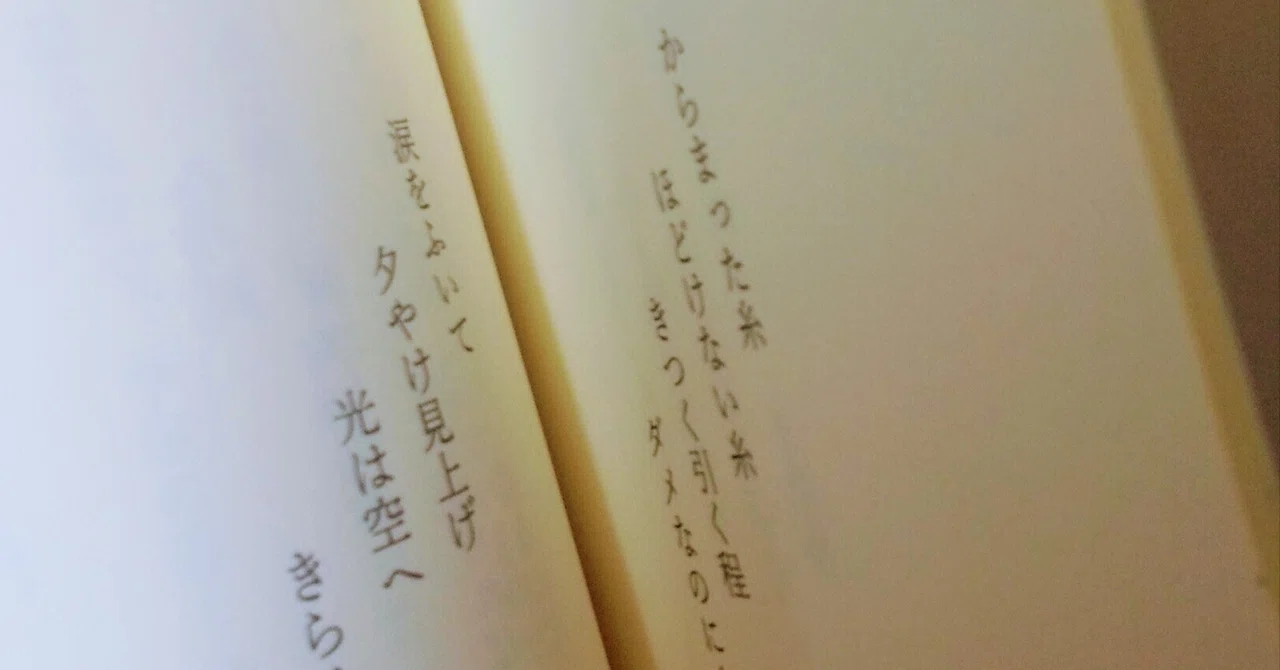 からまった糸
ほどけない糸
きつく引く程
ダメなのに
涙をふいて
夕やけ見上げ
光は空へ
きら